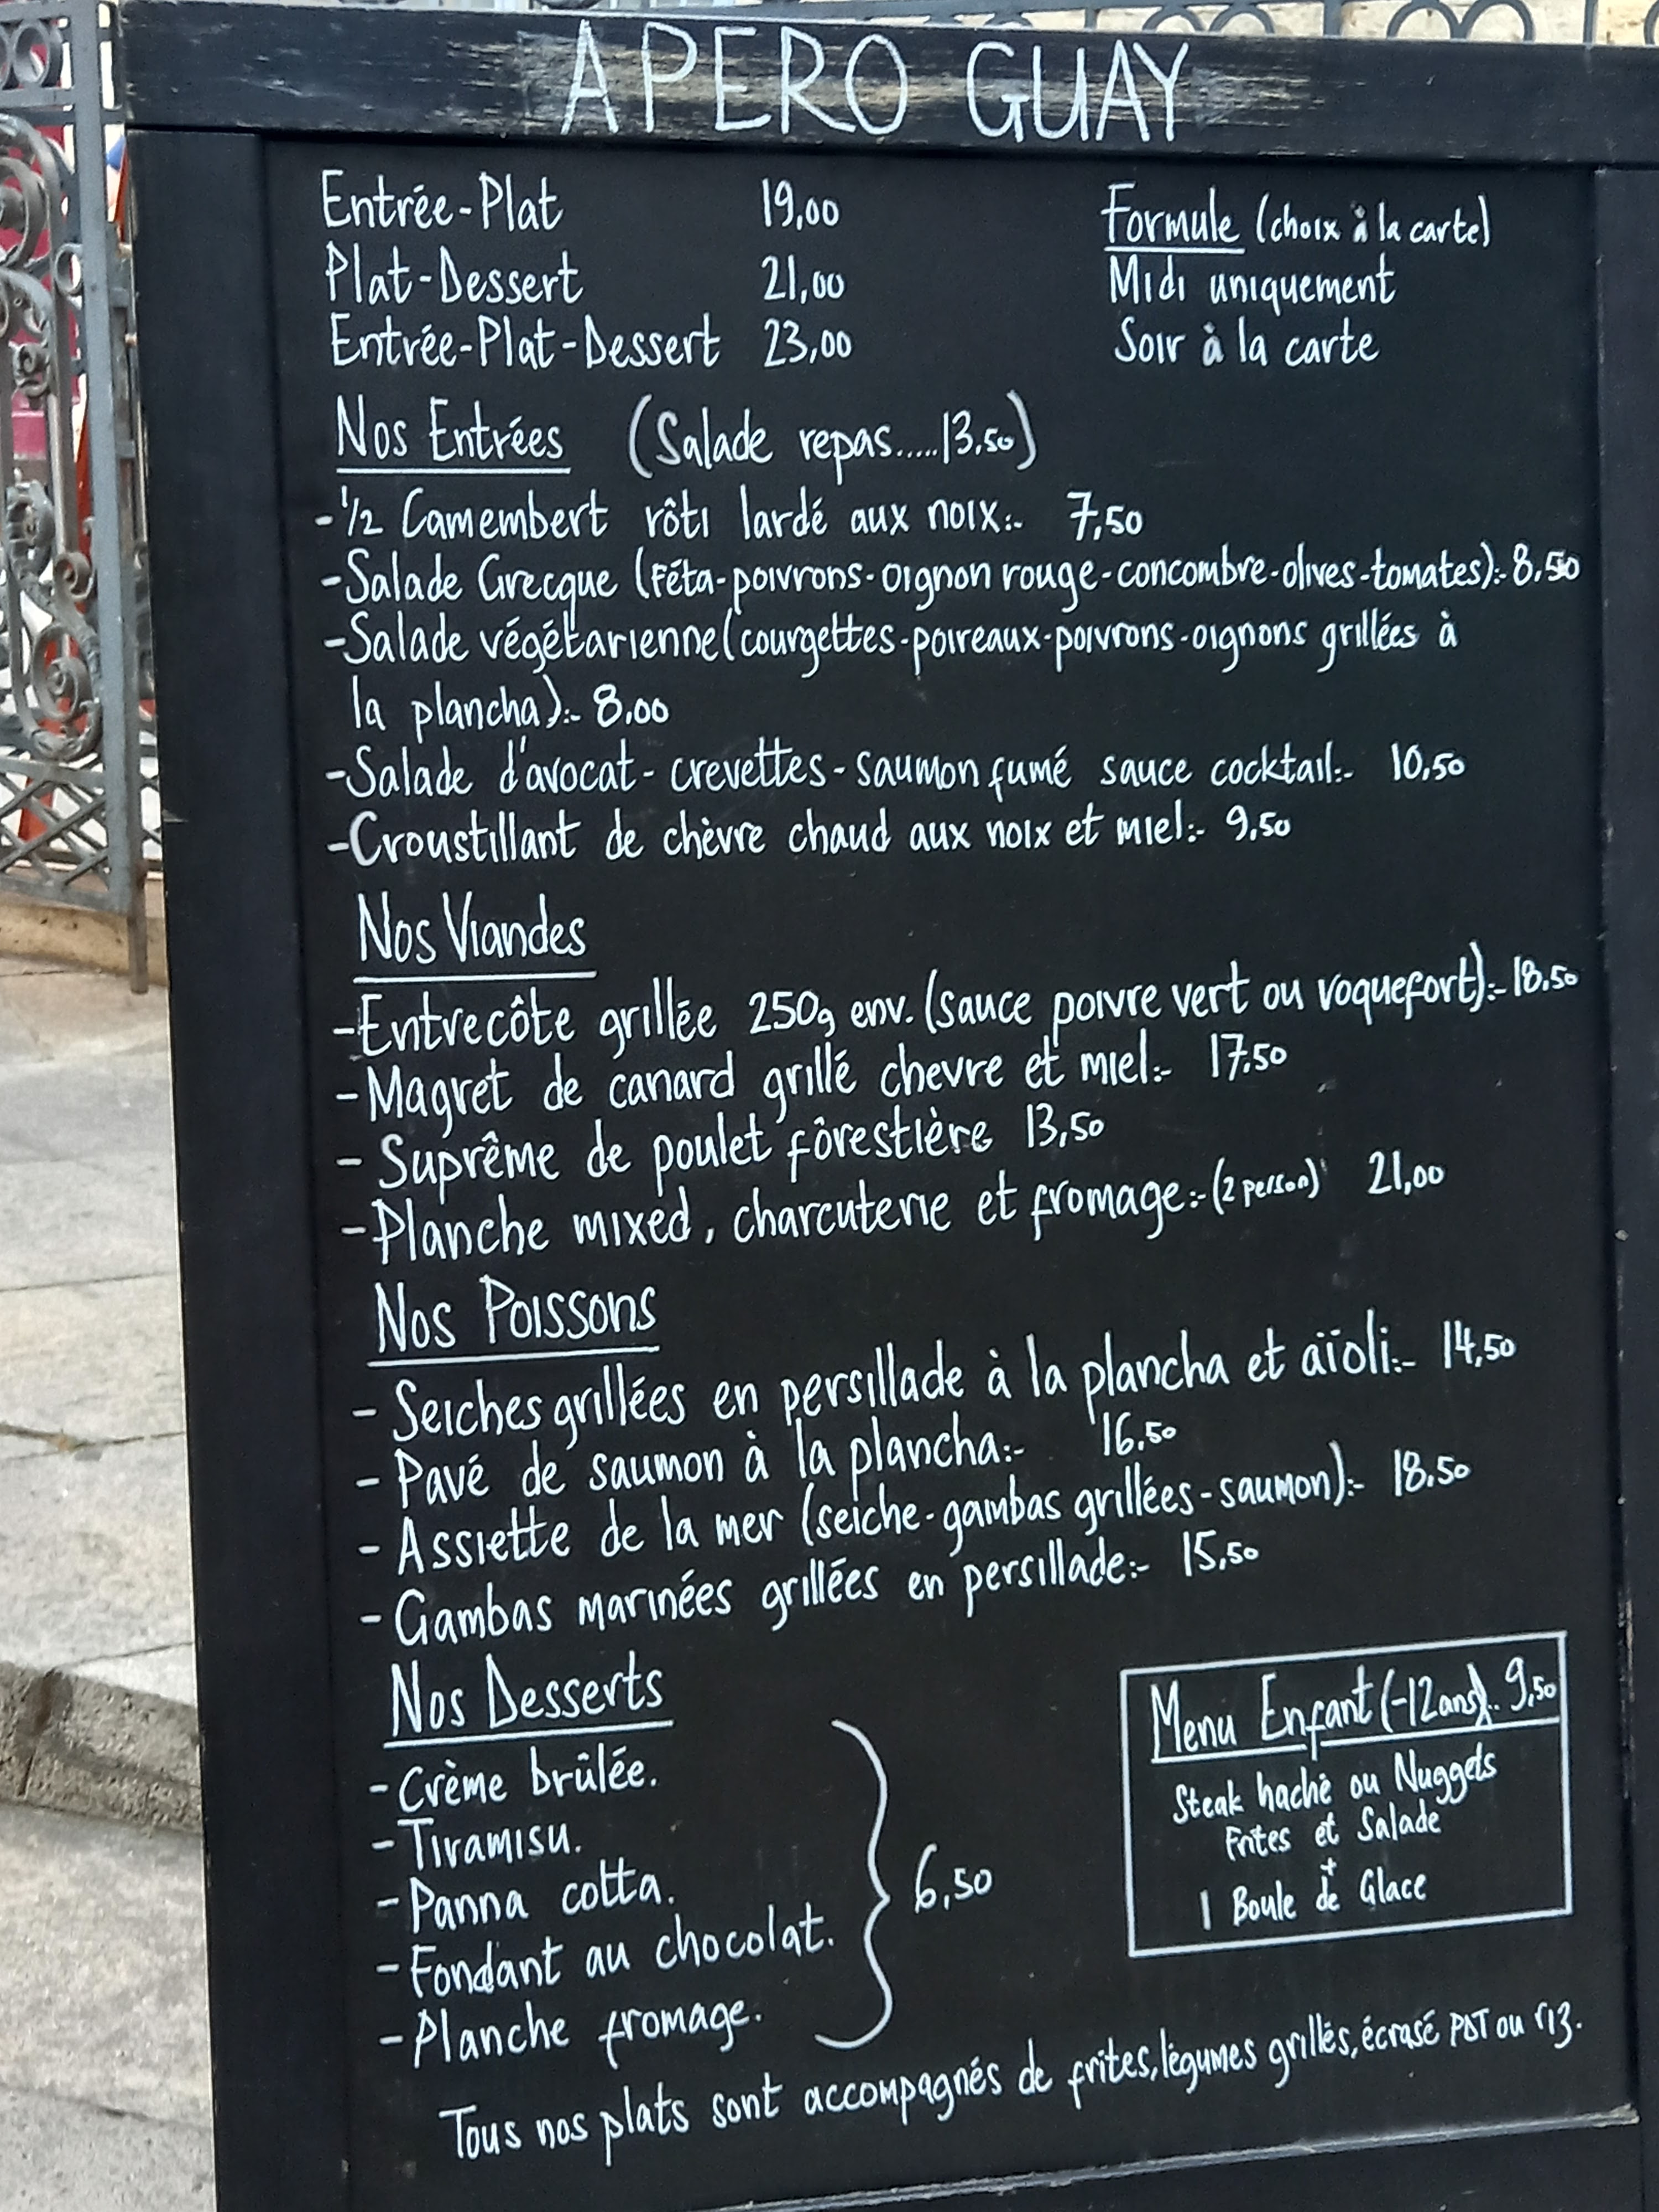 APERO GUAY
Entrée-Plat 19,00
Plat-Dessert 21,00
Entrée-Plat-Dessert 23,00
Formule (choix à la carte)
Midi uniquement
Soir à la carte
Nos Entrées (Salade repas.....13.50)
-1/2 Camembert rôti lardé aux noix:- 7,50
-Salade Grecque (Féta-poivrons-oignon rouge-concombre-olives-tomates):-8.50
-Salade végétarienne(courgettes-poireaux-poivrons-oignons grillées à
la plancha):- 8.00
-Salade d'avocat-crevettes-saumon fumé sauce cocktail:- 10,50
-Croustillant de chèvre chaud aux noix et miel:- 9,50
Nos Viandes
-Entrecôte grillée 250g env. (sauce poivre vert ou roquefort):-18.50
-Magret de canard grillé chevre et miel:- 17.50
- Suprême de poulet fôrestière 13,50
-Planche mixed, charcuterie et fromage:-(2 person) 21,00
Nos Poissons
- Seiches grillées en persillade à la plancha et aïoli:- 14,50
- Pavé de saumon à la plancha:- 16.50
- Assiette de la mer (seiche-gambas grillées-saumon):- 18.50
- Gambas marinées grillées en persillade:- 15,50
Nos Desserts
-Crème brûlée.
-Tiramisu.
-Panna cotta.
-Fondant au chocolat.
-Planche fromage.
6,50
Menu Enfant (-12ans).. 9,50
Steak haché ou Nuggets
Frites et Salade
+
1 Boule de Glace
Tous nos plats sont accompagnés de frites,légumes grillés,écrasé PDT ou riz.